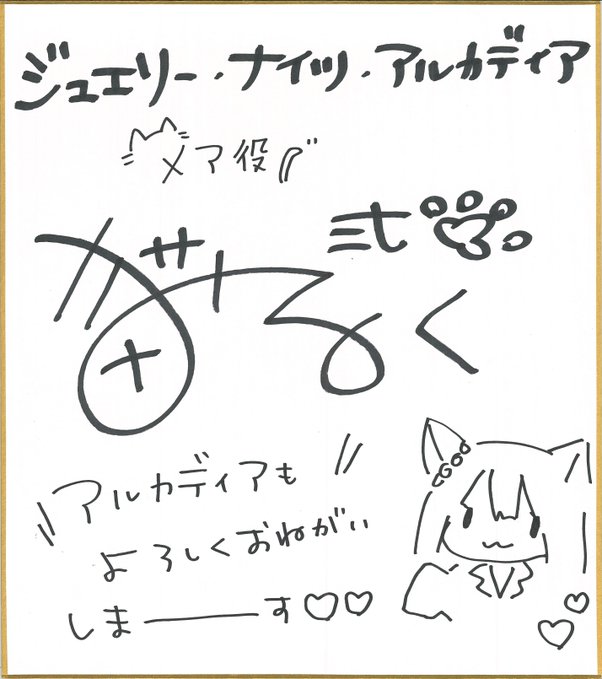 ジュエリー・ナイツ・アルカディア
メア役
アルカディアも
よろしくおねがい
しまーす♡♡